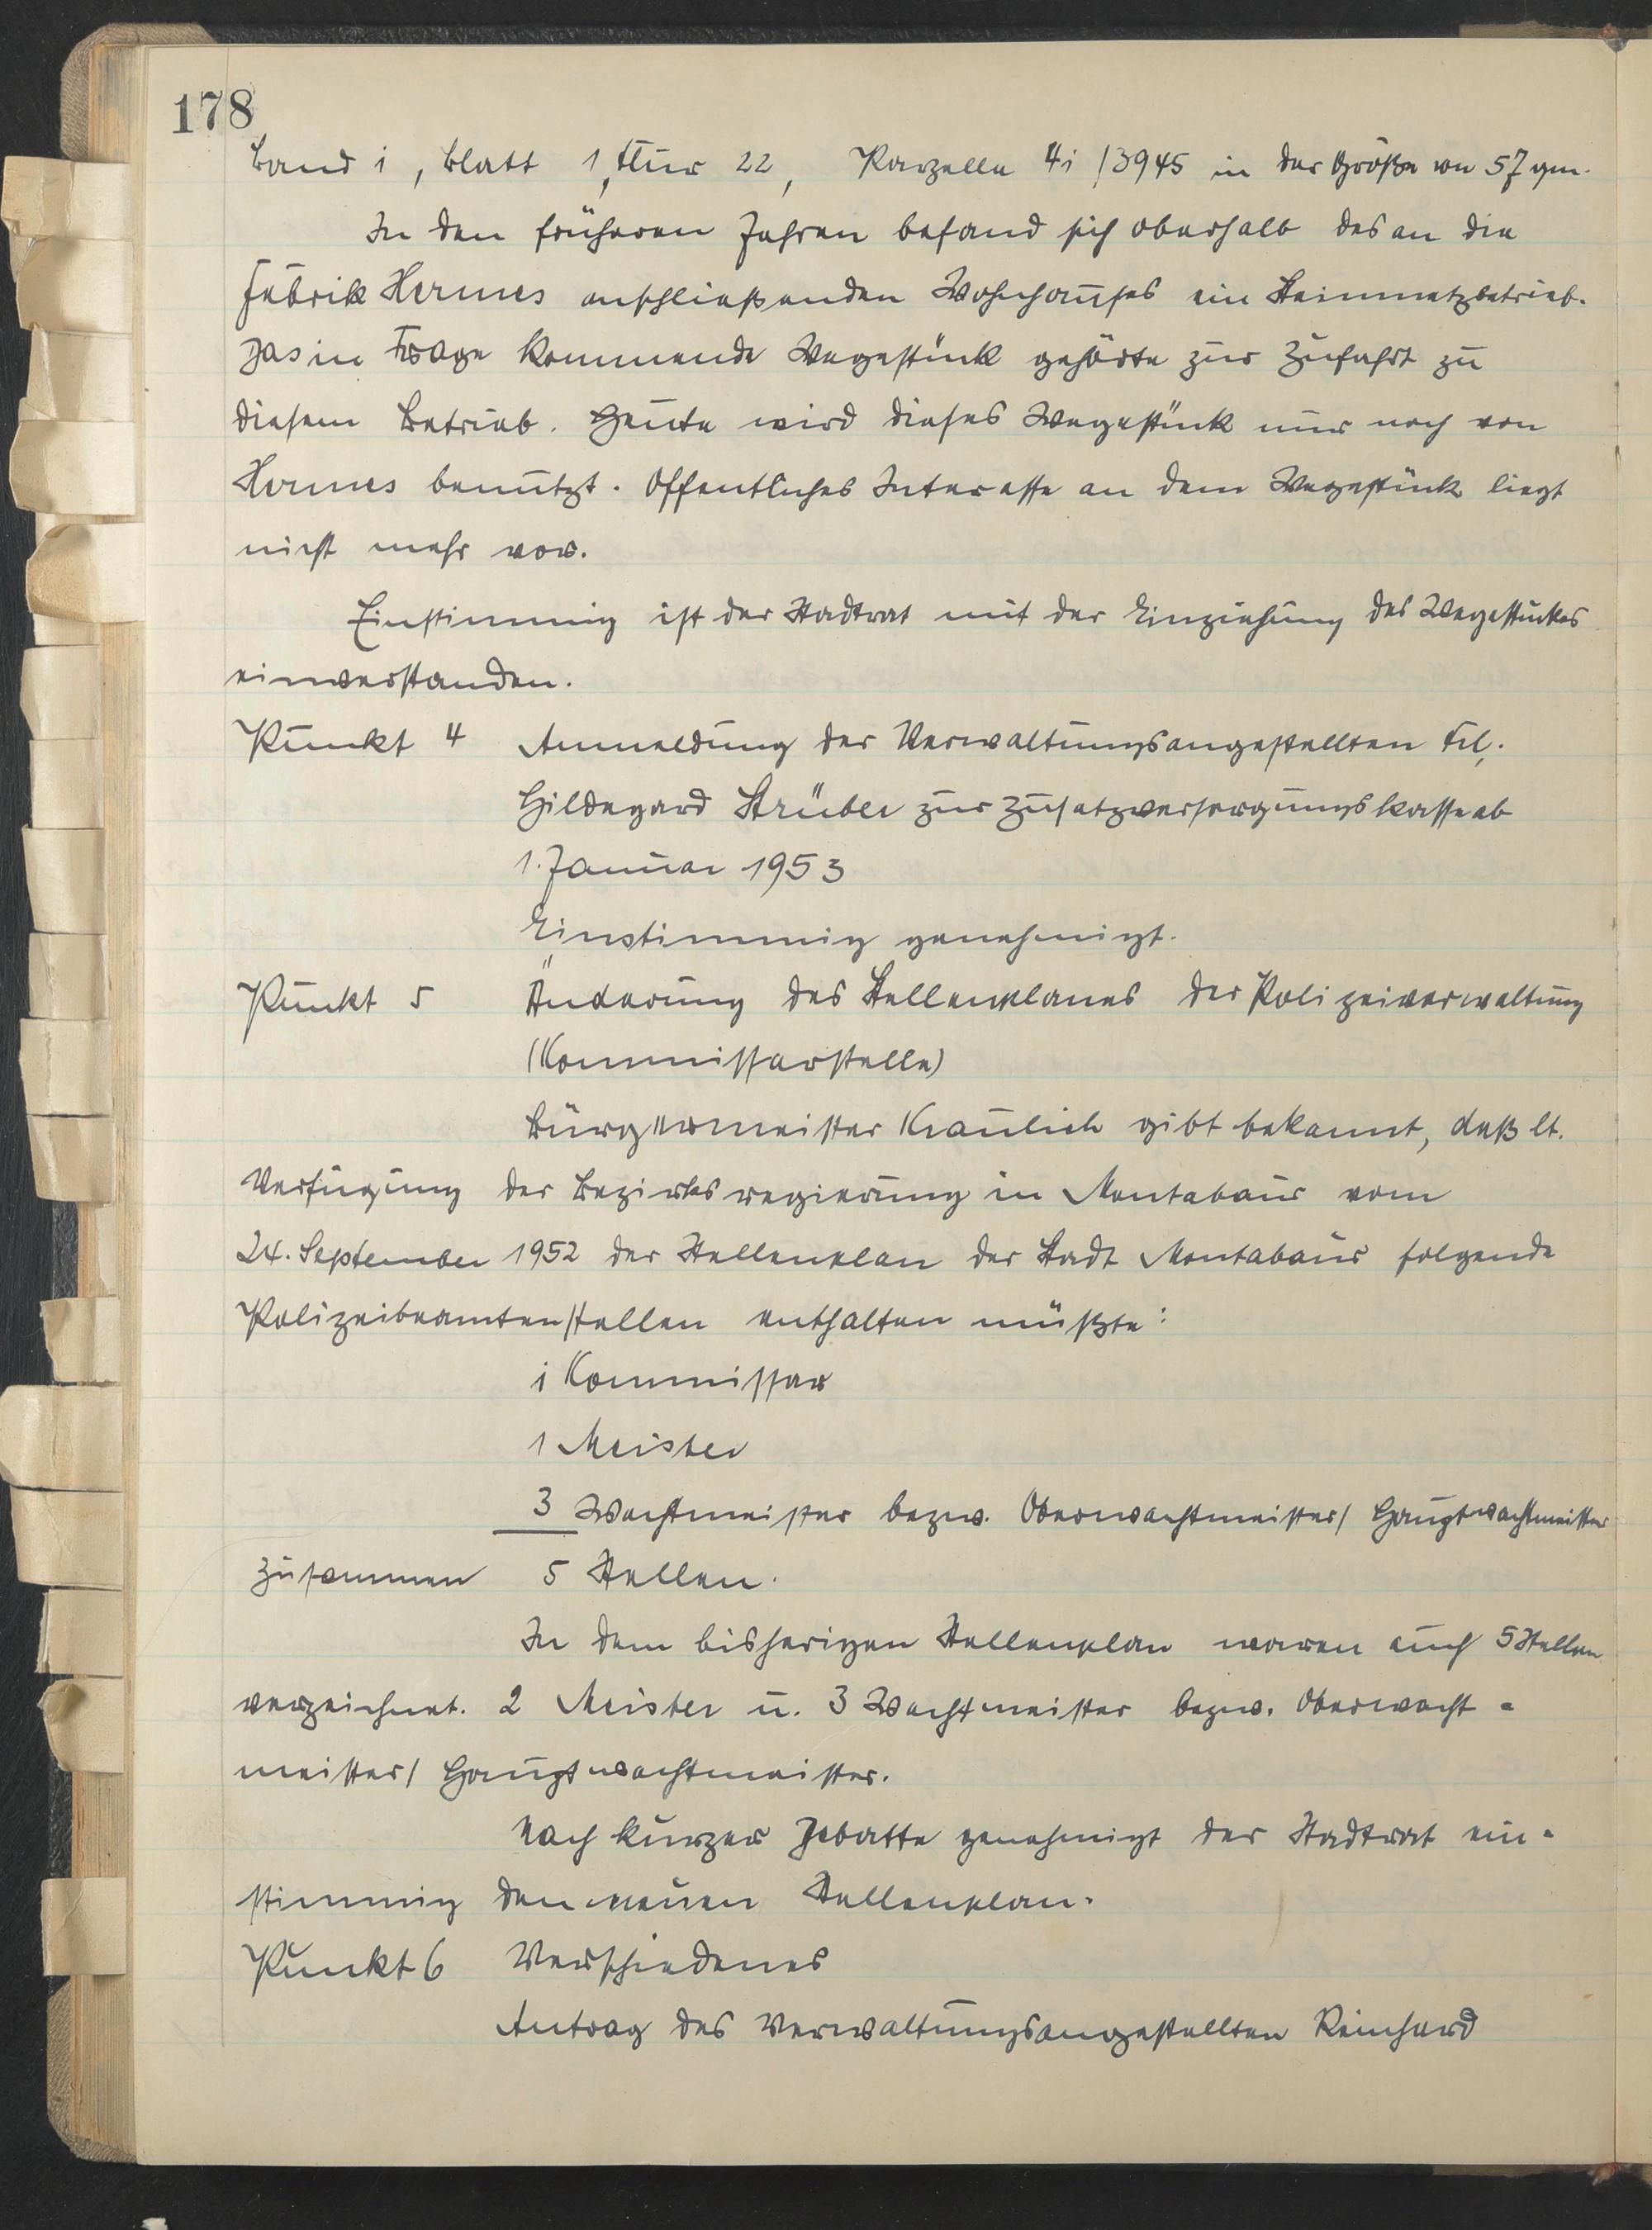 178
Band 1, Blatt 1, Flur 22, Parzelle 41/3945 in der Größe von 57 qm.
In den früheren Jahren befand sich oberhalb des an die
Fabrik Hermes anschließenden Wohnhauses ein Steinmetzbetrieb.
Das in Frage kommende Wegestück gehörte zur Zufahrt zu
diesem Betrieb. Heute wird dieses Wegestück nur noch von
Hermes benutzt. Öffentliches Interesse an dem Wegestück liegt
nicht mehr vor.
Einstimmig ist der Stadtrat mit der Einziehung des Wegestückes
einverstanden.
Punkt 4 Anmeldung der Verwaltungsangestellten Frl.
Hildegard Strüder zur Zusatzversorgungskasse ab
1. Januar 1953
Einstimmig genehmigt.
Punkt 5 Änderung des Stellenplanes der Polizeiverwaltung
(Kommissarstelle)
Bürgermeister Kraulich gibt bekannt, daß lt.
Verfügung der Bezirksregierung in Montabaur vom
24. September 1952 der Stellenplan der Stadt Montabaur folgende
Polizeibeamtenstellen enthalten müßte:
1 Kommissar
1 Meister
3 Wachtmeister bezw. Oberwachtmeister/ Hauptwachtmeister
zusammen 5 Stellen.
In dem bisherigen Stellenplan waren auch 5 Stellen
verzeichnet. 2 Meister u. 3 Wachtmeister bezw. Oberwacht=
meister/ Hauptwachtmeister.
Nach kurzer Debatte genehmigt der Stadtrat ein=
stimmig den neuen Stellenplan.
Punkt 6 Verschiedenes
Antrag des Verwaltungsangestellten Reinhard